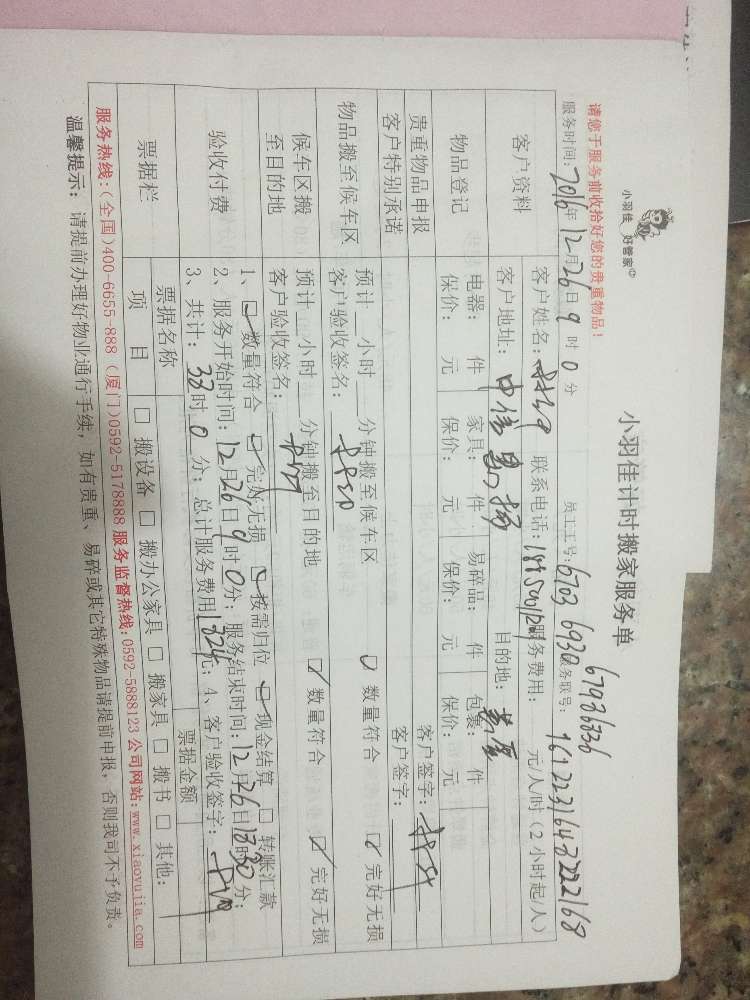 小羽佳 好管家
小羽佳计时搬家服务单
请您于服务前收拾好您的贵重物品！
员工工号：6703 6930 67986336
服务时间：2016年12月26日9时0分 服务联号：
客户资料
客户姓名： 联系电话： 服务费用： 元/人/时（2小时起/人）
客户地址：中信 目的地：
物品登记
电器： 件 家具： 件 易碎品： 件 包裹： 件
保价： 元 保价： 元 保价： 元 保价： 元
贵重物品申报 客户签字：
客户特别承诺 客户签字：
物品搬至候车区
预计 小时 分钟搬至候车区 数量符合 完好无损
客户验收签名：
候车区搬至目的地
预计 小时 分钟搬至目的地 数量符合 完好无损
客户验收签名：
验收付费
1、数量符合 完好无损 按需归位 现金结算 转账汇款
2、服务开始时间：12月26日9时0分；服务结束时间：12月26日18时30分；
3、共计：38时0分；总计服务费用1824元；4、客户验收签字：
票据栏
票据名称 票据金额
项目 搬设备 搬办公家具 搬家具 搬书 其他：
服务热线：(全国)400-6655-888 (厦门)0592-5178888 服务监督热线：0592-5888123 公司网站：www.xiaoyujia.com
温馨提示：请提前办理好物业通行手续，如有贵重、易碎或其它特殊物品请提前申报，否则我司不予负责。